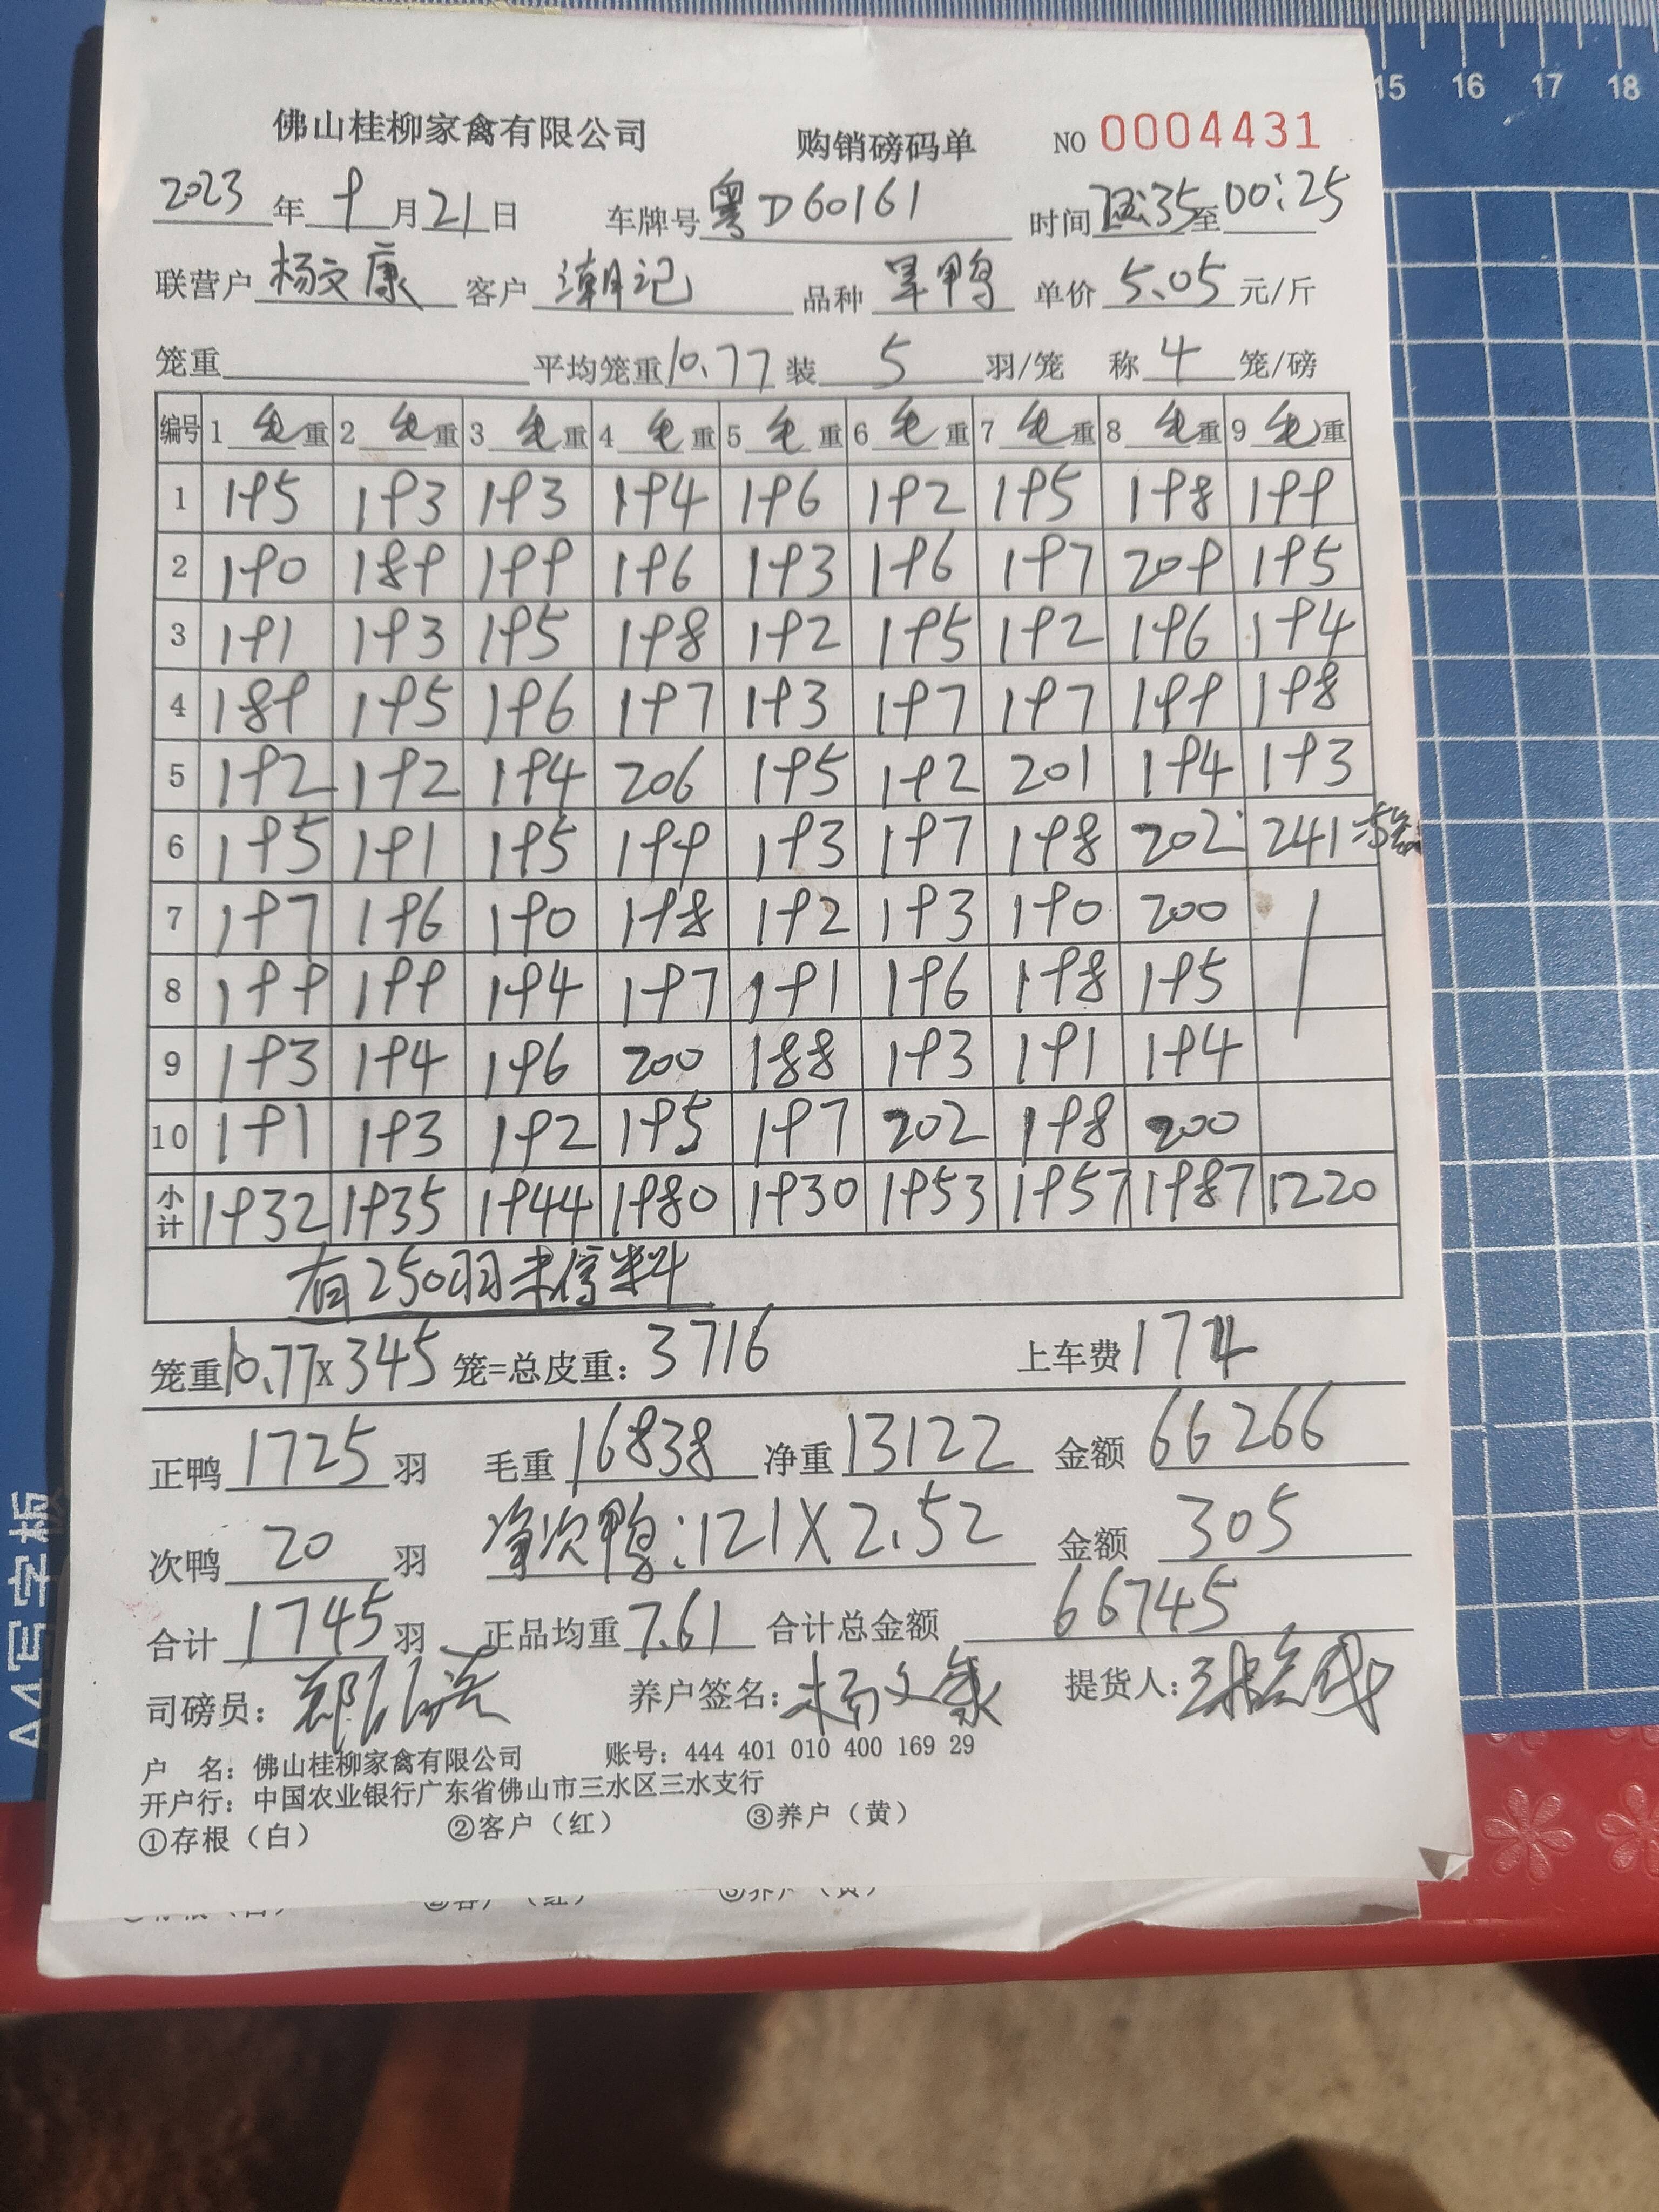 15 16 17 18
佛山桂柳家禽有限公司 购销磅码单 NO 0004431
2023年9月21日 车牌号粤D60161 时间:35至00:25
联营户杨文康 客户潮记 品种旱鸭 单价5.05元/斤
笼重 平均笼重10.77装5羽/笼 称4笼/磅
编号 1毛重 2毛重 3毛重 4毛重 5毛重 6毛重 7毛重 8毛重 9毛重
1 195 193 193 194 196 192 195 198 199
2 190 189 199 196 193 196 197 209 195
3 191 193 195 198 192 195 192 196 194
4 189 195 196 197 193 197 197 199 198
5 192 192 194 206 195 192 201 194 193
6 195 191 195 199 193 197 198 202 241
7 197 196 190 198 192 193 190 200
8 199 199 194 197 191 196 198 195
9 193 194 196 200 188 193 191 194
10 191 193 192 195 197 202 198 200
小计 1932 1935 1944 1980 1930 1953 1957 1987 1220
有250羽未停料
笼重10.77x345笼=总皮重:3716 上车费174
正鸭1725羽 毛重16838净重13122 金额66266
次鸭20羽 净次鸭:121X2.52 金额305
合计1745羽 正品均重7.61 合计总金额66745
司磅员: 养户签名:杨文康 提货人:
户 名:佛山桂柳家禽有限公司 账号:444 401 010 400 169 29
开户行:中国农业银行广东省佛山市三水区三水支行
①存根(白) ②客户(红) ③养户(黄)
A4写字板